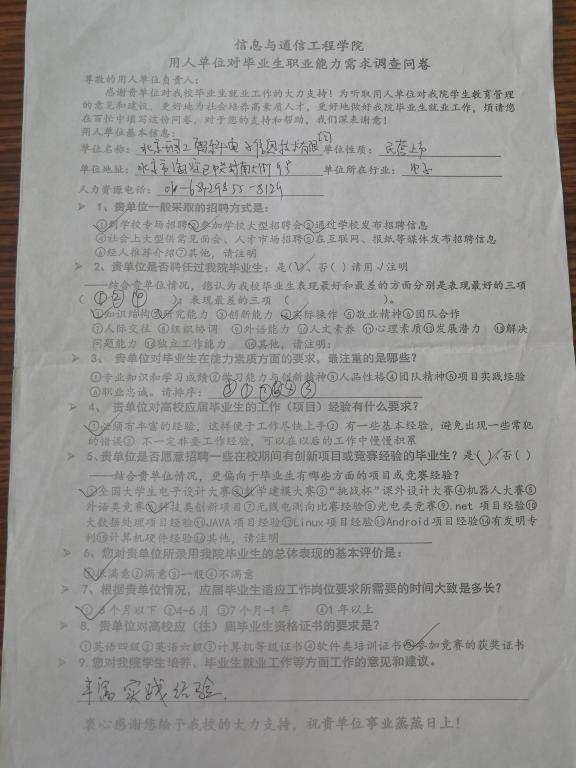 信息与通信工程学院
用人单位对毕业生职业能力需求调查问卷
尊敬的用人单位负责人：
感谢贵单位对我校毕业生就业工作的大力支持！为听取用人单位对我院学生教育管理
的意见和建议，更好地为社会培养高素质人才，更好地做好我院毕业生就业工作，烦请您
在百忙中填写这份问卷，对于您的支持和帮助，我们深表谢意！
用人单位基本信息：
单位名称：北京 电子信息技术有限 单位性质：民营上市
单位地址：北京市海淀区 村南大街9号 单位所在行业：电子
人力资源电话：010-68929855-8129
➢ 1、贵单位一般采取的招聘方式是：
①到学校专场招聘②参加学校大型招聘会③通过学校发布招聘信息
④社会上大型供需见面会、人才市场招聘⑤在互联网、报纸等媒体发布招聘信息
⑥经人推荐介绍⑦其他，请注明
➢ 2、贵单位是否聘任过我院毕业生：是(√)，否( )请用√注明
——结合贵单位情况，您认为我校毕业生表现最好和最差的方面分别是表现最好的三项
( ①②④ )；表现最差的三项 ( )。
①知识结构②研究能力 ③创新能力 ④实际操作 ⑤敬业精神⑥团队合作
⑦人际交往 ⑧组织协调 ⑨外语能力 ⑩人文素养 ⑪心理素质⑫发展潜力 ⑬解决
问题能力 ⑭独立工作能力 ⑮其他，请注明：
➢ 3、 贵单位对毕业生在能力素质方面的要求，最注重的是哪些？
①专业知识和学习成绩②学习能力与创新精神③人品性格④团队精神⑤项目实践经验
⑥职业忠诚。请排序：
➢ 4、 贵单位对高校应届毕业生的工作（项目）经验有什么要求？
①必须有丰富的经验，这样便于工作尽快上手② 有一些基本经验，避免出现一些常犯
的错误③ 不一定非要工作经验，可以在以后的工作中慢慢积累
➢ 5、贵单位是否愿意招聘一些在校期间有创新项目或竞赛经验的毕业生？是(√)，否( )
——结合贵单位情况，更偏向于毕业生有哪些方面的项目或竞赛经验？
①全国大学生电子设计大赛②数学建模大赛③“挑战杯”课外设计大赛④机器人大赛⑤
外语类竞赛⑥科技类创新项目⑦无线电测向比赛经验⑧光电类竞赛⑨.net 项目经验⑩
大数据处理项目经验⑪JAVA项目经验⑫Linux项目经验⑬Android项目经验⑭有发明专
利⑮计算机硬件经验⑯其他，请注明
➢ 6、您对贵单位所录用我院毕业生的总体表现的基本评价是：
①很满意②满意③一般④不满意
➢ 7、根据贵单位情况，应届毕业生适应工作岗位要求所需要的时间大致是多长？
① 3 个月以下 ②4-6 月 ③7 个月-1 年 ④1 年以上
➢ 8. 贵单位对高校应（往）届毕业生资格证书的要求是？
①英语四级②英语六级③计算机等级证书④软件类培训证书⑤参加竞赛的获奖证书
➢ 9. 您对我院学生培养、毕业生就业工作等方面工作的意见和建议。
丰富实践经验.
衷心感谢您给予我校的大力支持，祝贵单位事业蒸蒸日上！